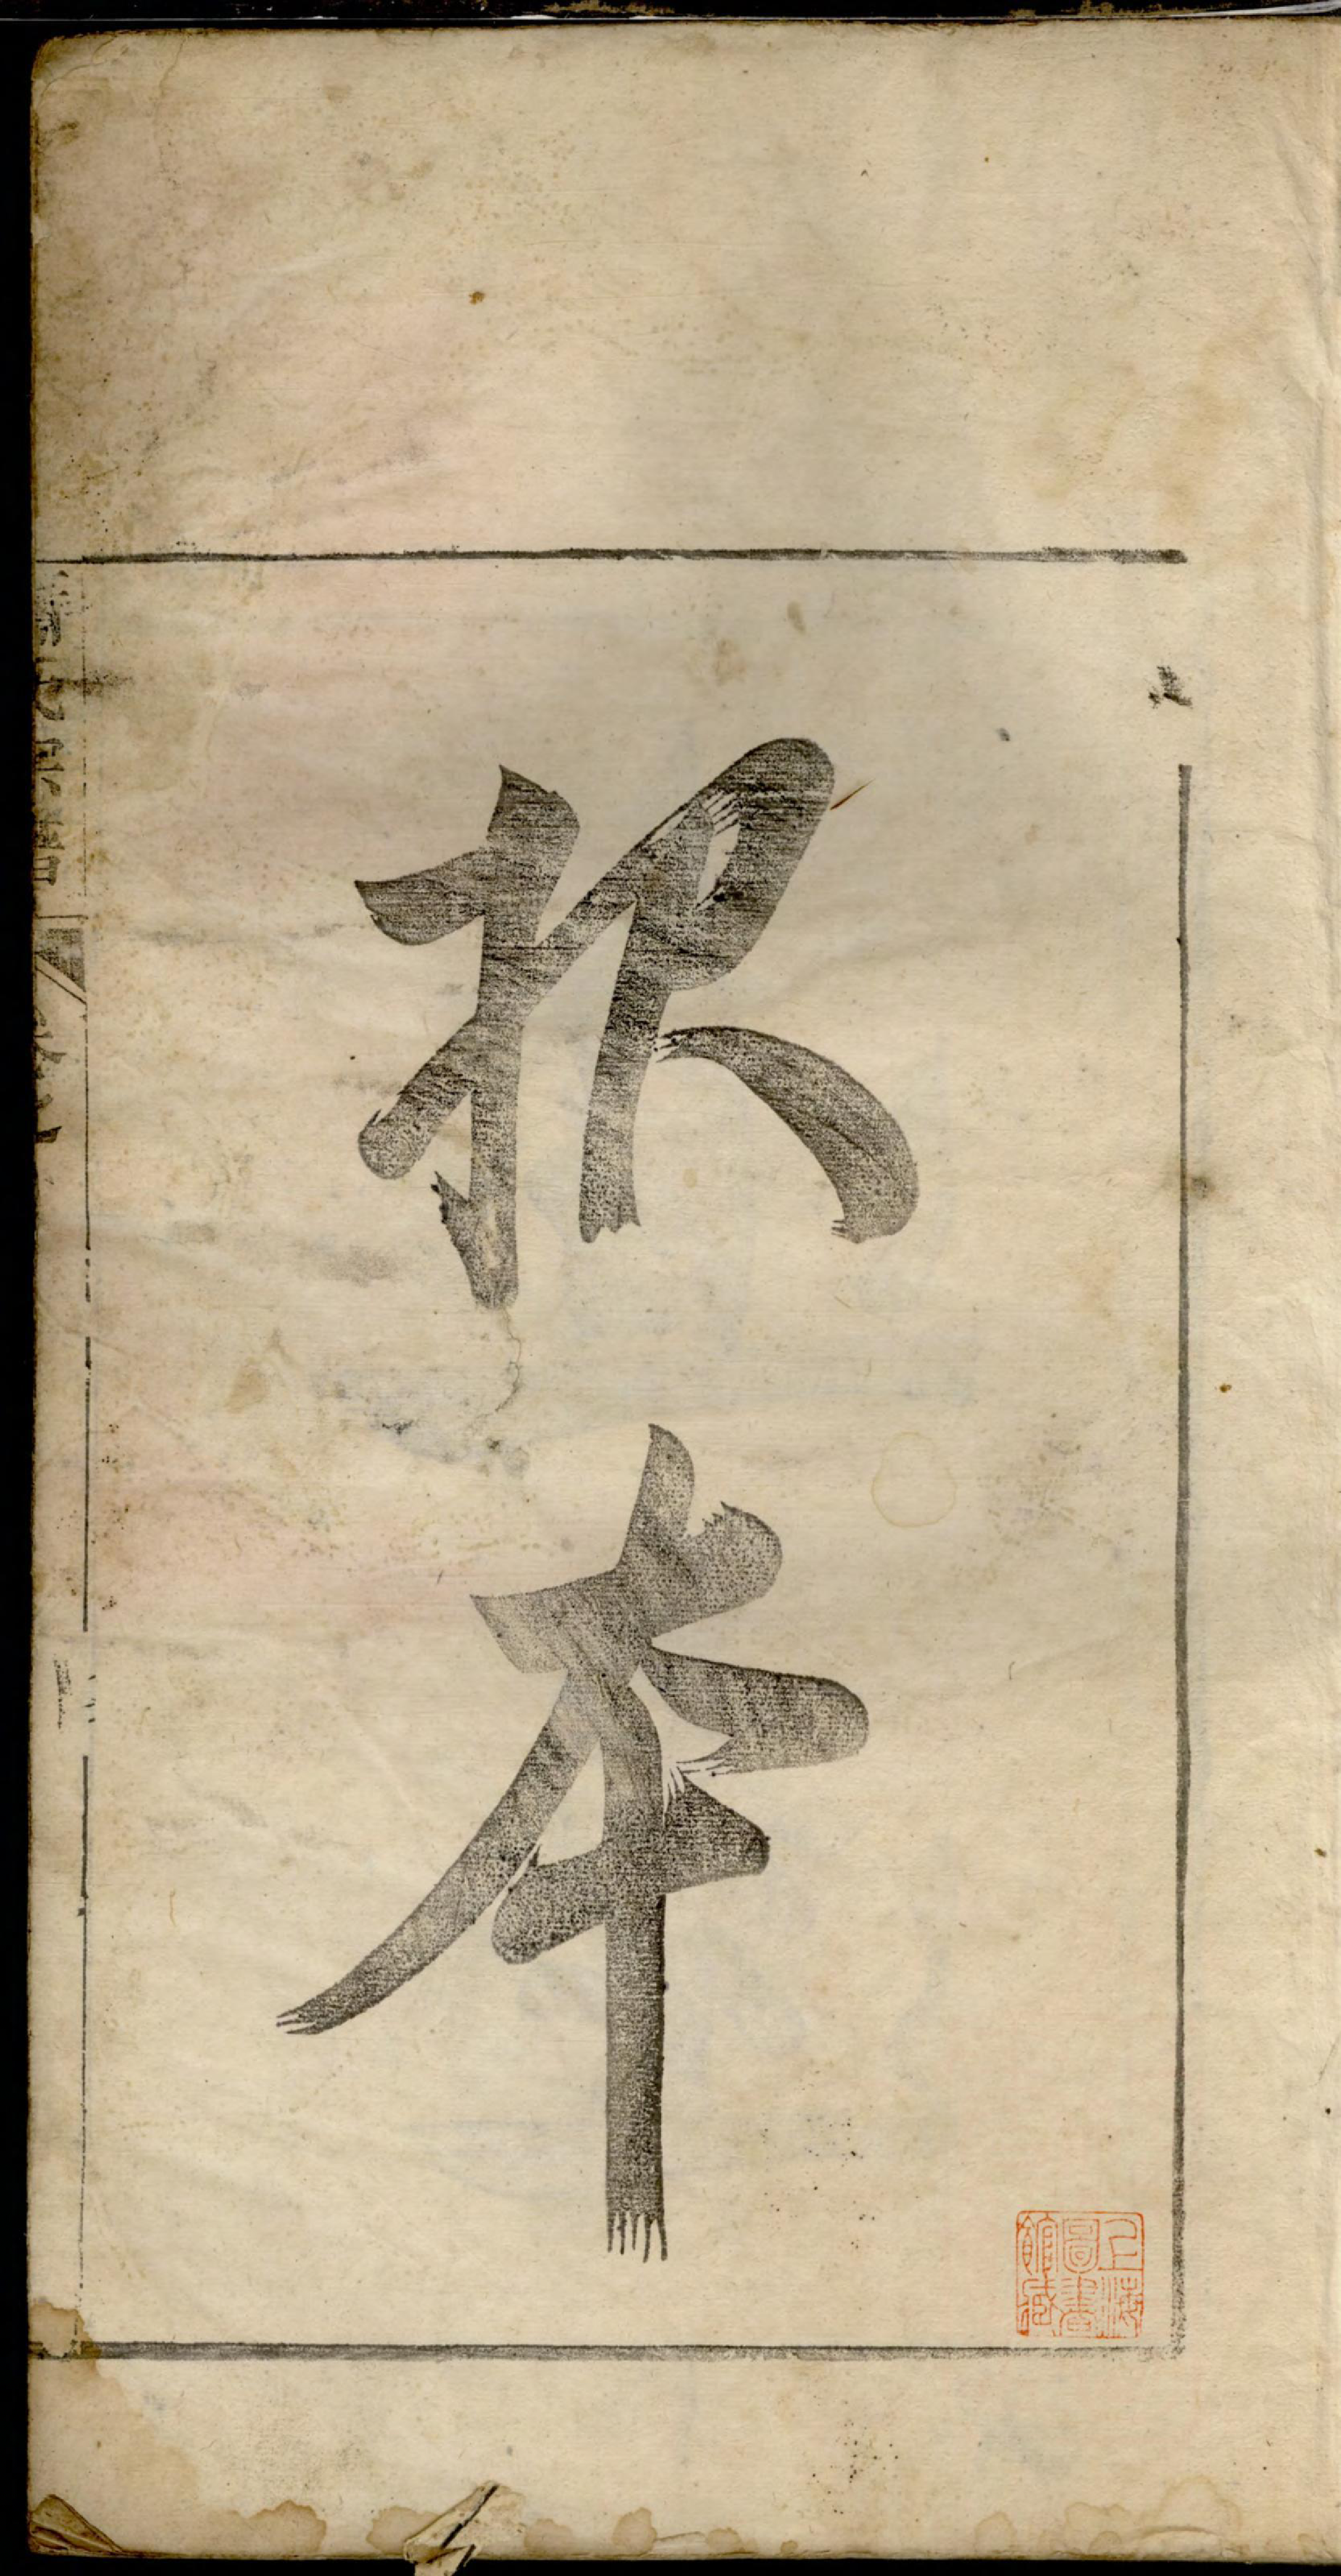 报本
上海
圖書
館藏